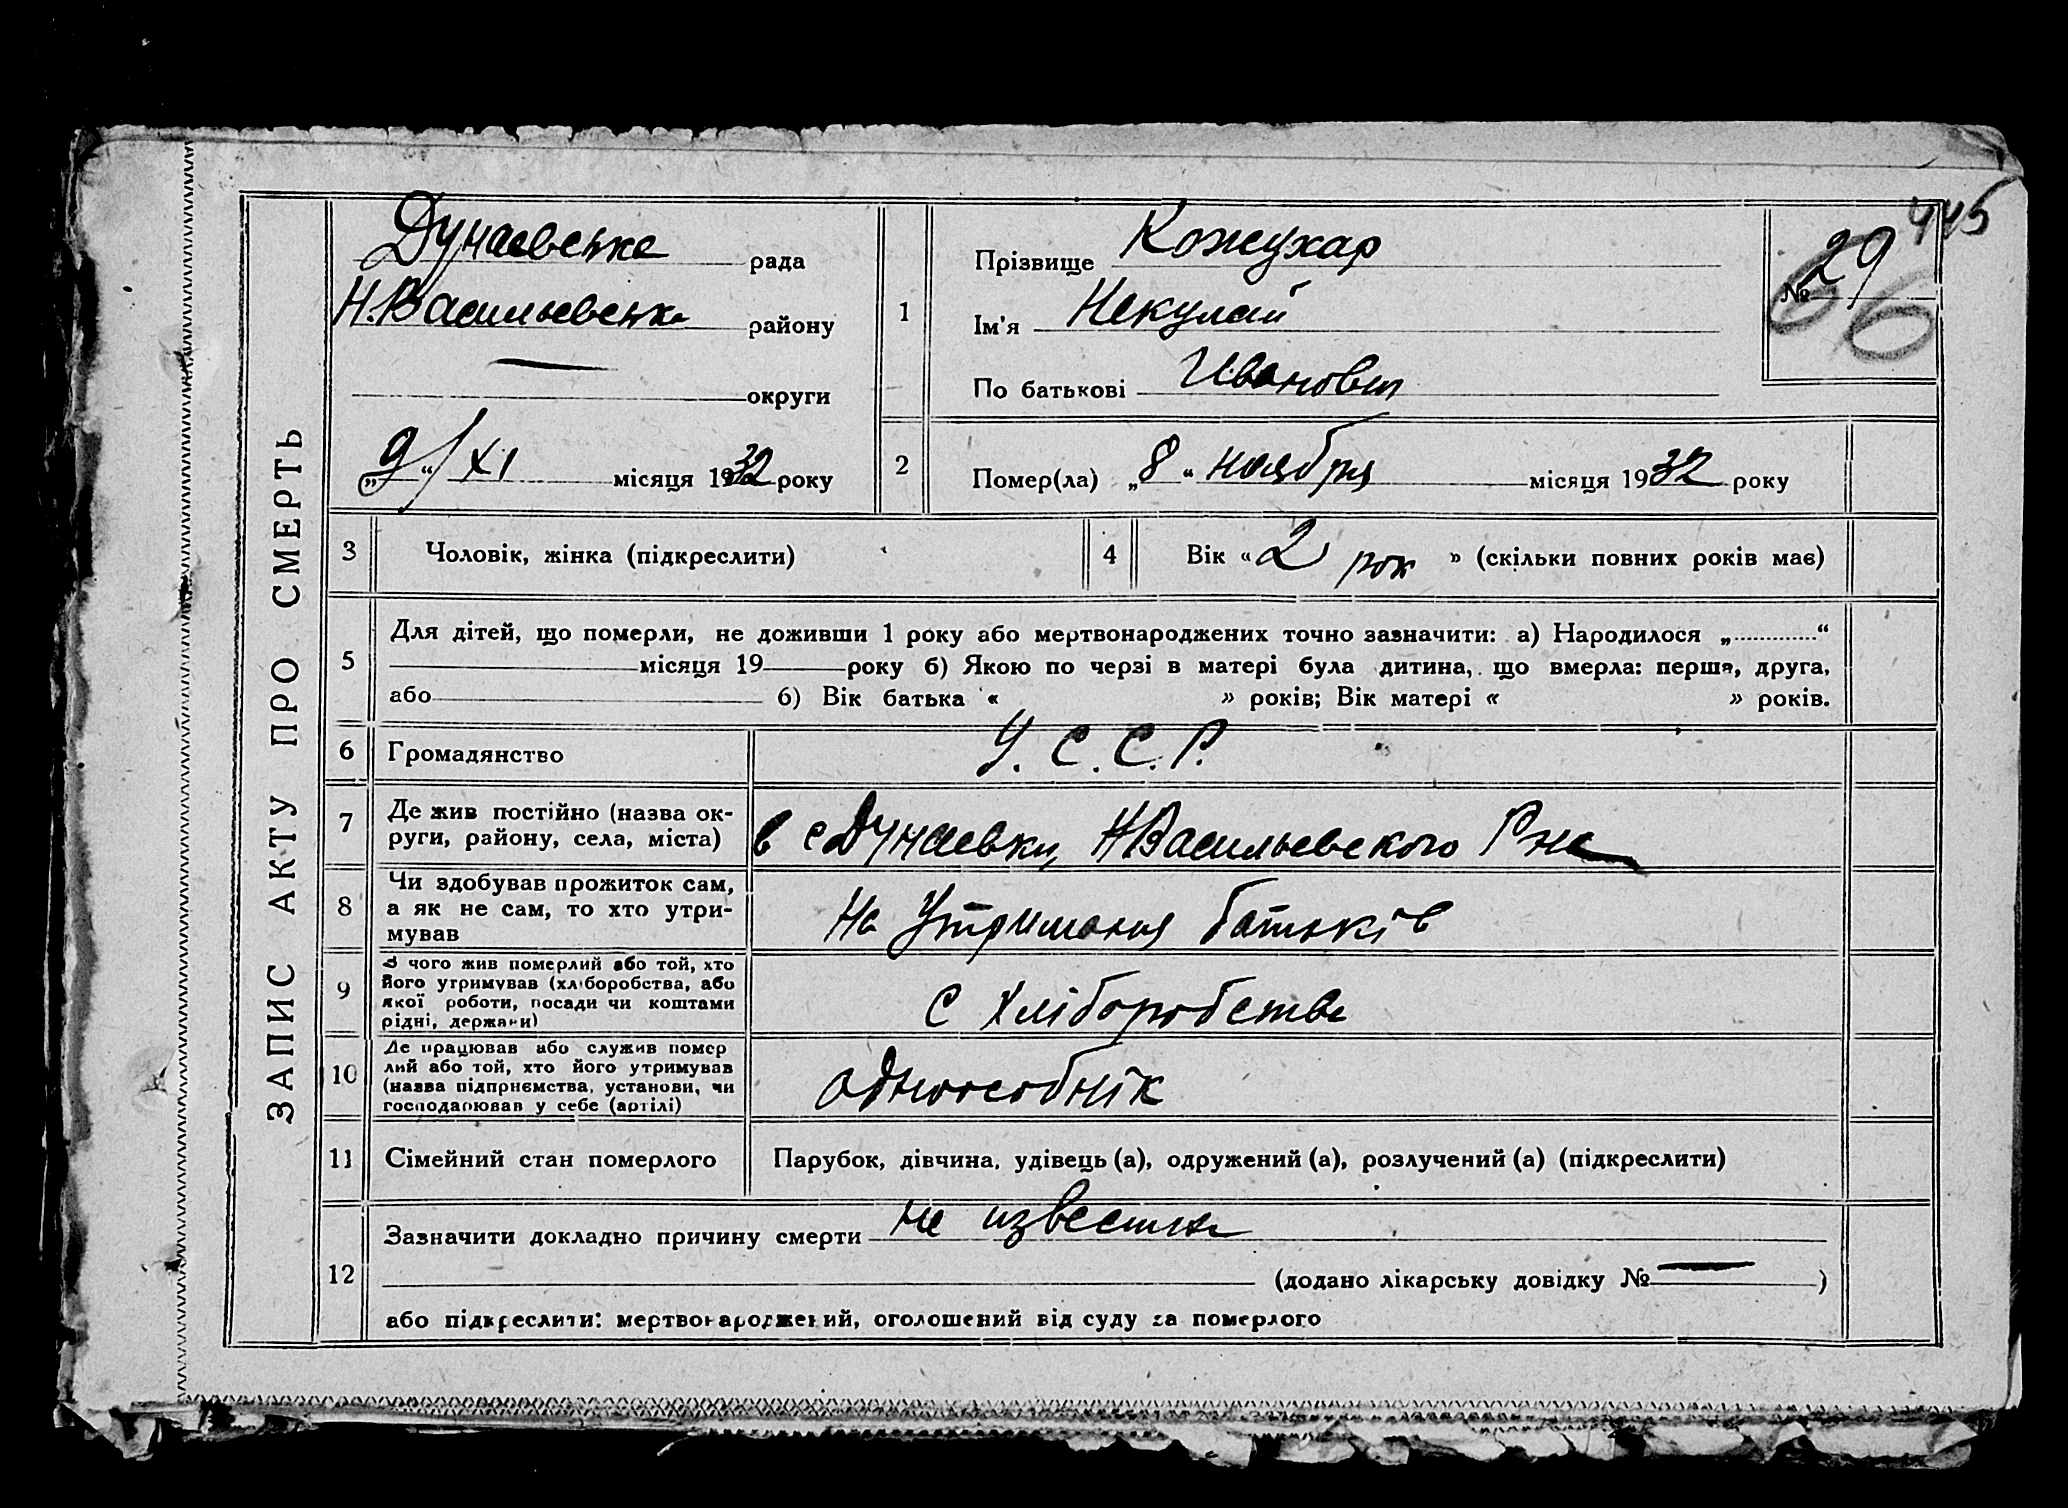 445
ЗАПИС АКТУ ПРО СМЕРТЬ
Дунаевська рада
Н.Васильевська району
округи
„9“ XI місяця 1932 року
1
Прізвище Кожухар
Ім'я Некулай
По батькові Иванович
№ 29
66
2
Помер(ла) „8“ ноября місяця 1932 року
3
Чоловік, жінка (підкреслити)
4
Вік «2 рок» (скільки повних років має)
5
Для дітей, що померли, не доживши 1 року або мертвонароджених точно зазначити: а) Народилося „ “
місяця 19 року б) Якою по черзі в матері була дитина, що вмерла: перша, друга,
або б) Вік батька « » років; Вік матері « » років.
6
Громадянство
У.С.С.Р.
7
Де жив постійно (назва ок-
руги, району, села, міста)
в с Дунаевки, НВасильевского Рна
8
Чи здобував прожиток сам,
а як не сам, то хто утри-
мував
На Утриманя батьків
9
З чого жив померлий або той, хто
його утримував (хліборобства, або
якої роботи, посади чи коштами
рідні, держави)
С хліборобства
10
Де працював або служив помер
лий або той, хто його утримував
(назва підприємства, установи, чи
господарював у себе (артілі)
одноособнік
11
Сімейний стан померлого
Парубок, дівчина, удівець (а), одружений (а), розлучений (а) (підкреслити)
12
Зазначити докладно причину смерти не известна
(додано лікарську довідку № — )
або підкреслити: мертвонароджений, оголошений від суду за померлого